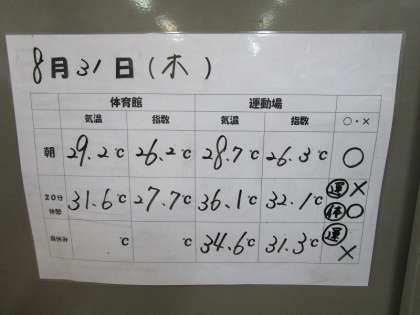 8月31日(木)
体育館 運動場
気温 指数 気温 指数 ○・×
朝 29.2℃ 26.2℃ 28.7℃ 26.3℃ ○
20分休憩 31.6℃ 27.7℃ 36.1℃ 32.1℃ 運× 体○
昼休み ℃ ℃ 34.6℃ 31.3℃ 運×